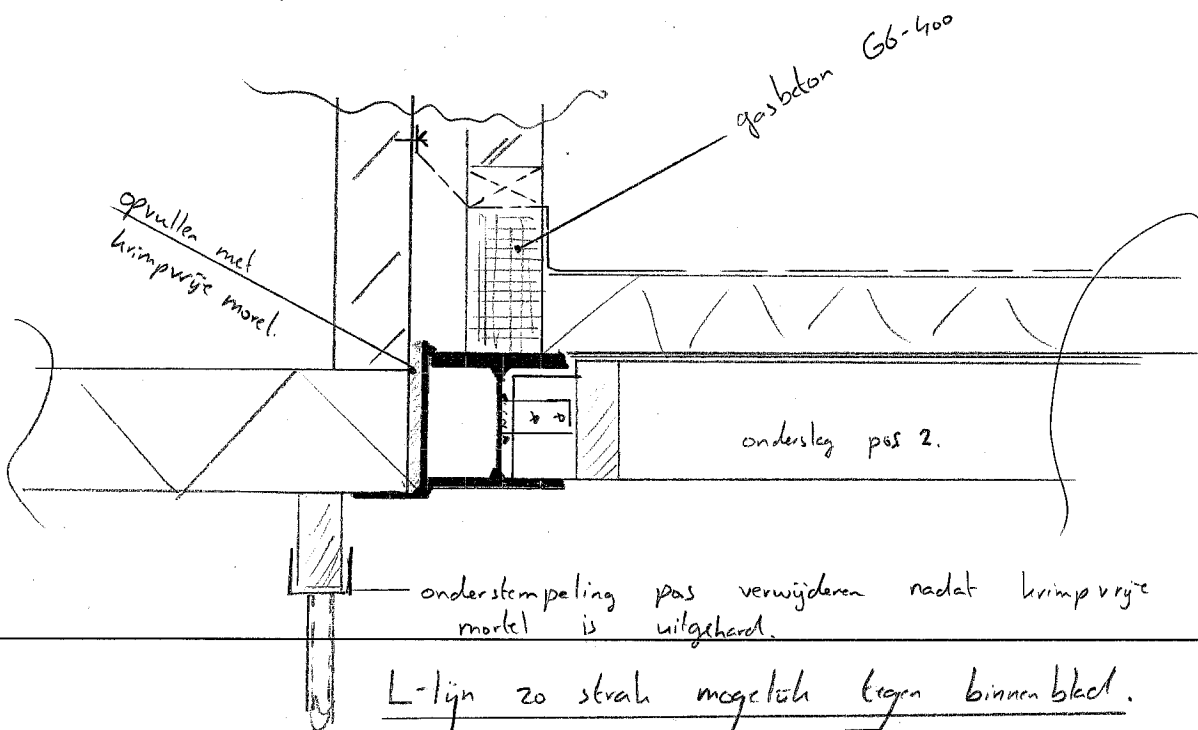 gasbeton G6-400
opvullen met
krimpvrije morel.
onderslag pos 2.
onderstempeling pas verwijderen nadat krimpvrije
mortel is uitgehard.
L-lijn zo strak mogelijk tegen binnenblad.